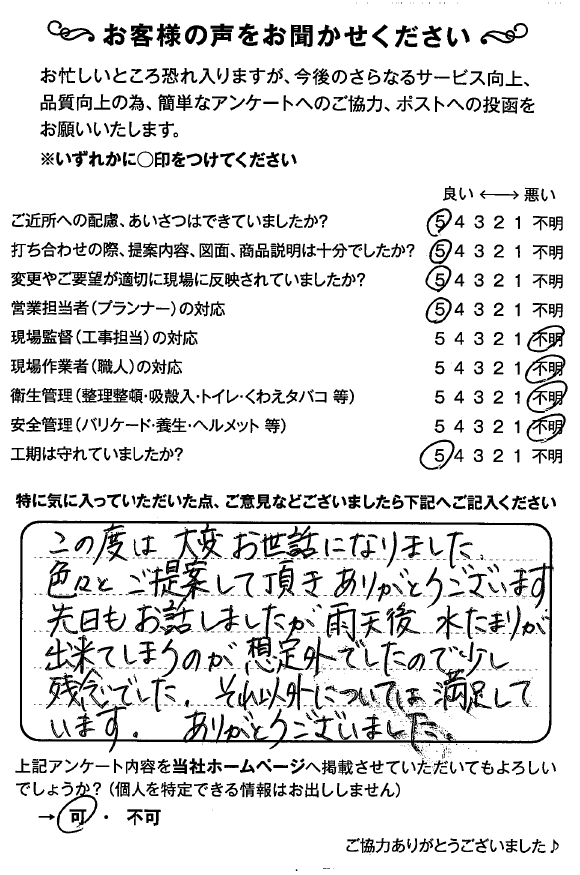 お客様の声をお聞かせください
お忙しいところ恐れ入りますが、今後のさらなるサービス向上、
品質向上の為、簡単なアンケートへのご協力、ポストへの投函を
お願いいたします。
※いずれかに○印をつけてください
良い ←→ 悪い
ご近所への配慮、あいさつはできていましたか? 5 4 3 2 1 不明
打ち合わせの際、提案内容、図面、商品説明は十分でしたか? 5 4 3 2 1 不明
変更やご要望が適切に現場に反映されていましたか? 5 4 3 2 1 不明
営業担当者(プランナー)の対応 5 4 3 2 1 不明
現場監督(工事担当)の対応 5 4 3 2 1 不明
現場作業者(職人)の対応 5 4 3 2 1 不明
衛生管理(整理整頓・吸殻入・トイレ・くわえタバコ 等) 5 4 3 2 1 不明
安全管理(バリケード・養生・ヘルメット 等) 5 4 3 2 1 不明
工期は守れていましたか? 5 4 3 2 1 不明
特に気に入っていただいた点、ご意見などございましたら下記へご記入ください
この度は 大変お世話になりました.
色々と ご提案して頂き ありがとうございます
先日もお話しましたが 雨天後 水たまりが
出来てしまうのが 想定外でしたので少し
残念でした. それ以外については満足して
います. ありがとうございました.
上記アンケート内容を当社ホームページへ掲載させていただいてもよろしい
でしょうか?(個人を特定できる情報はお出ししません)
→ 可 ・ 不可
ご協力ありがとうございました♪